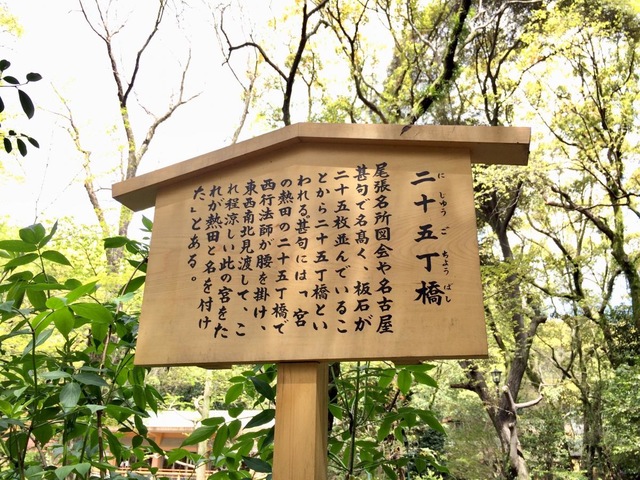 二十五丁橋
にじゅうごちょうばし
尾張名所図会や名古屋
甚句で名高く、板石が
二十五枚並んでいるこ
とから二十五丁橋とい
われる。甚句には「宮
の熱田の二十五丁橋で
西行法師が腰を掛け、
東西南北見渡して、こ
れ程涼しい此の宮をた
れが熱田と名を付け
た」とある。